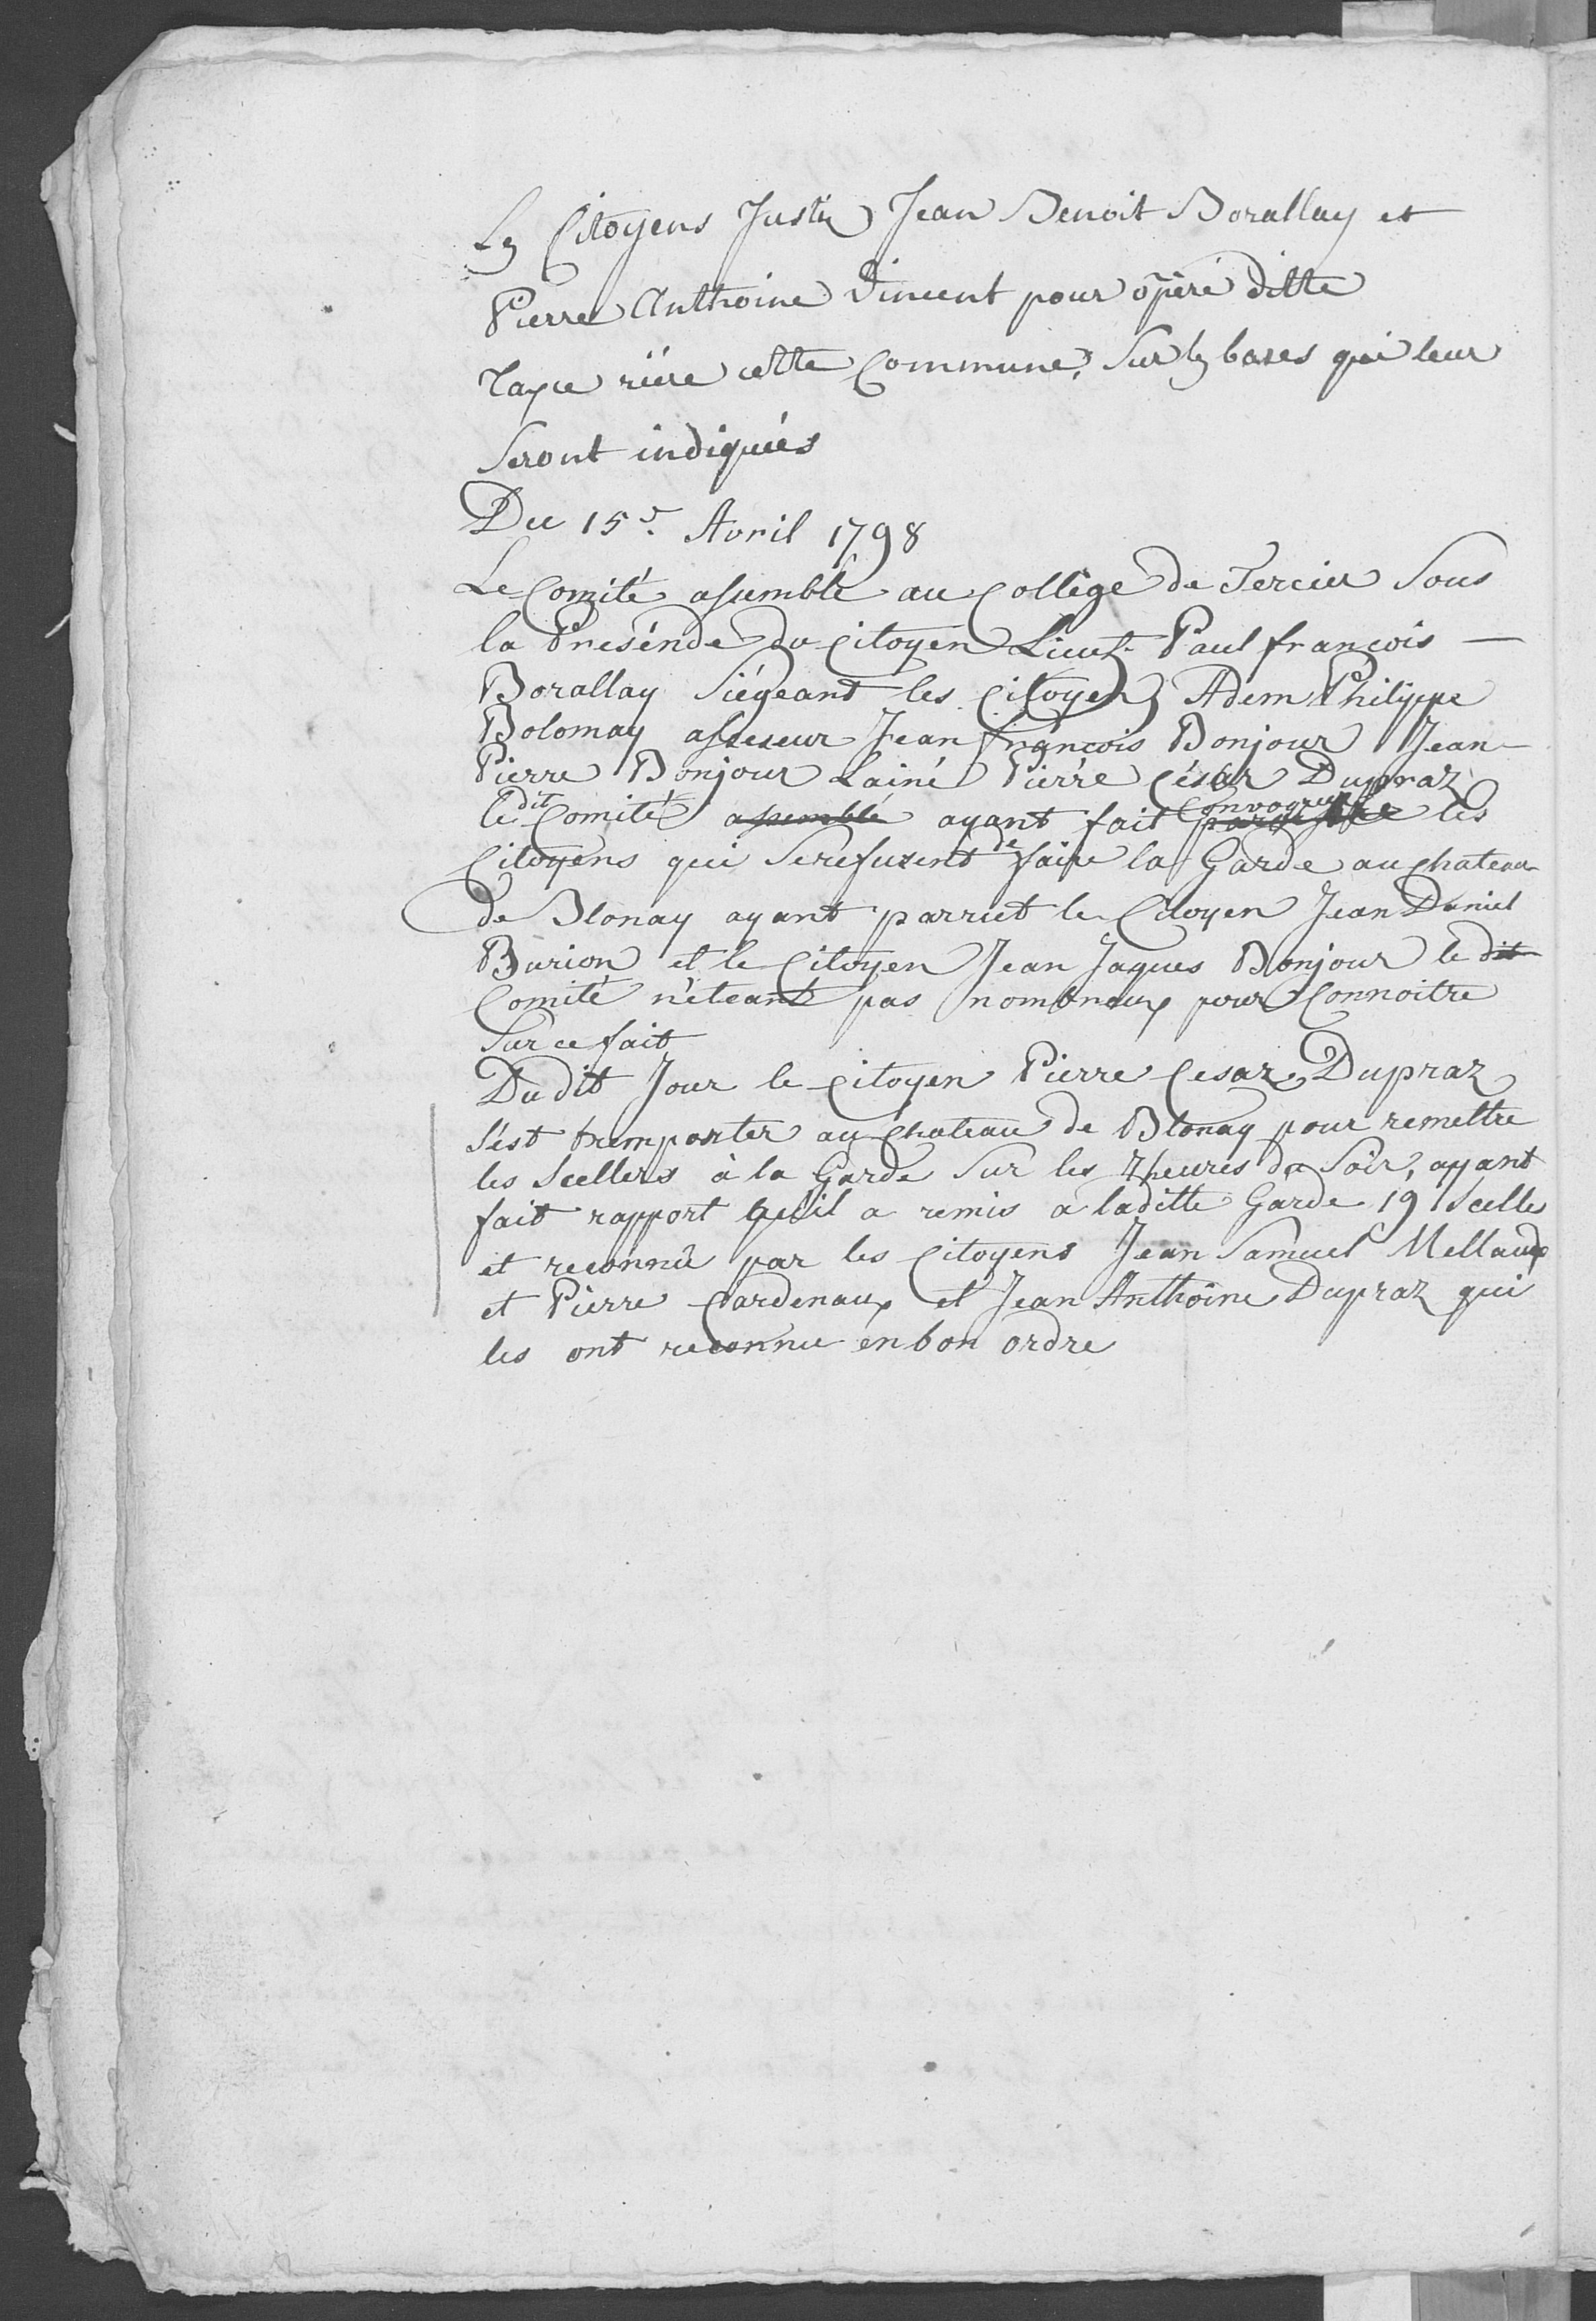 Les Citoyens Justis Jean Benoit Borallay et
Pierre Anthoine Vincent pour opéré ditte
Taxe riére cette Commune, Sur les bases qui leur
Seront indiquées
Du 15e. Avril 1798
Le Comité assemblé au Collège de Tercier Sous
la Presénde du Citoyen Lieut. Paul françois —
Borallay Siégeant les Citoyens Adem Philippe
Bolomay assesseur Jean françois Bonjour Jean
Pierre Bonjour Lainé Pierre César Dupraz
le dit Comité assemblé ayant fait Convoquer les
Citoyens qui Se refusent de faire la Garde au Chateau
de Blonay ayant parruet le Citoyen Jean Daniel
Burion et le Citoyen Jean Jaques Bonjour le dit
Comité n'éteant pas nombreux pour Connoitre
Sur ce fait
Du dit Jour le Citoyen Pierre Cesar Dupraz
S'est tremporter au Chateau de Blonay pour remettre
les Scellers à la Garde Sur les 7 heures du Soir, ayant
fait rapport qu'il a remis a laditte Garde 19 Scelles
et reconnû par les Citoyens Jean Samuel Mellaux
et Pierre Cardenaux et Jean Anthoine Dupraz qui
les ont reconnu en bon ordre